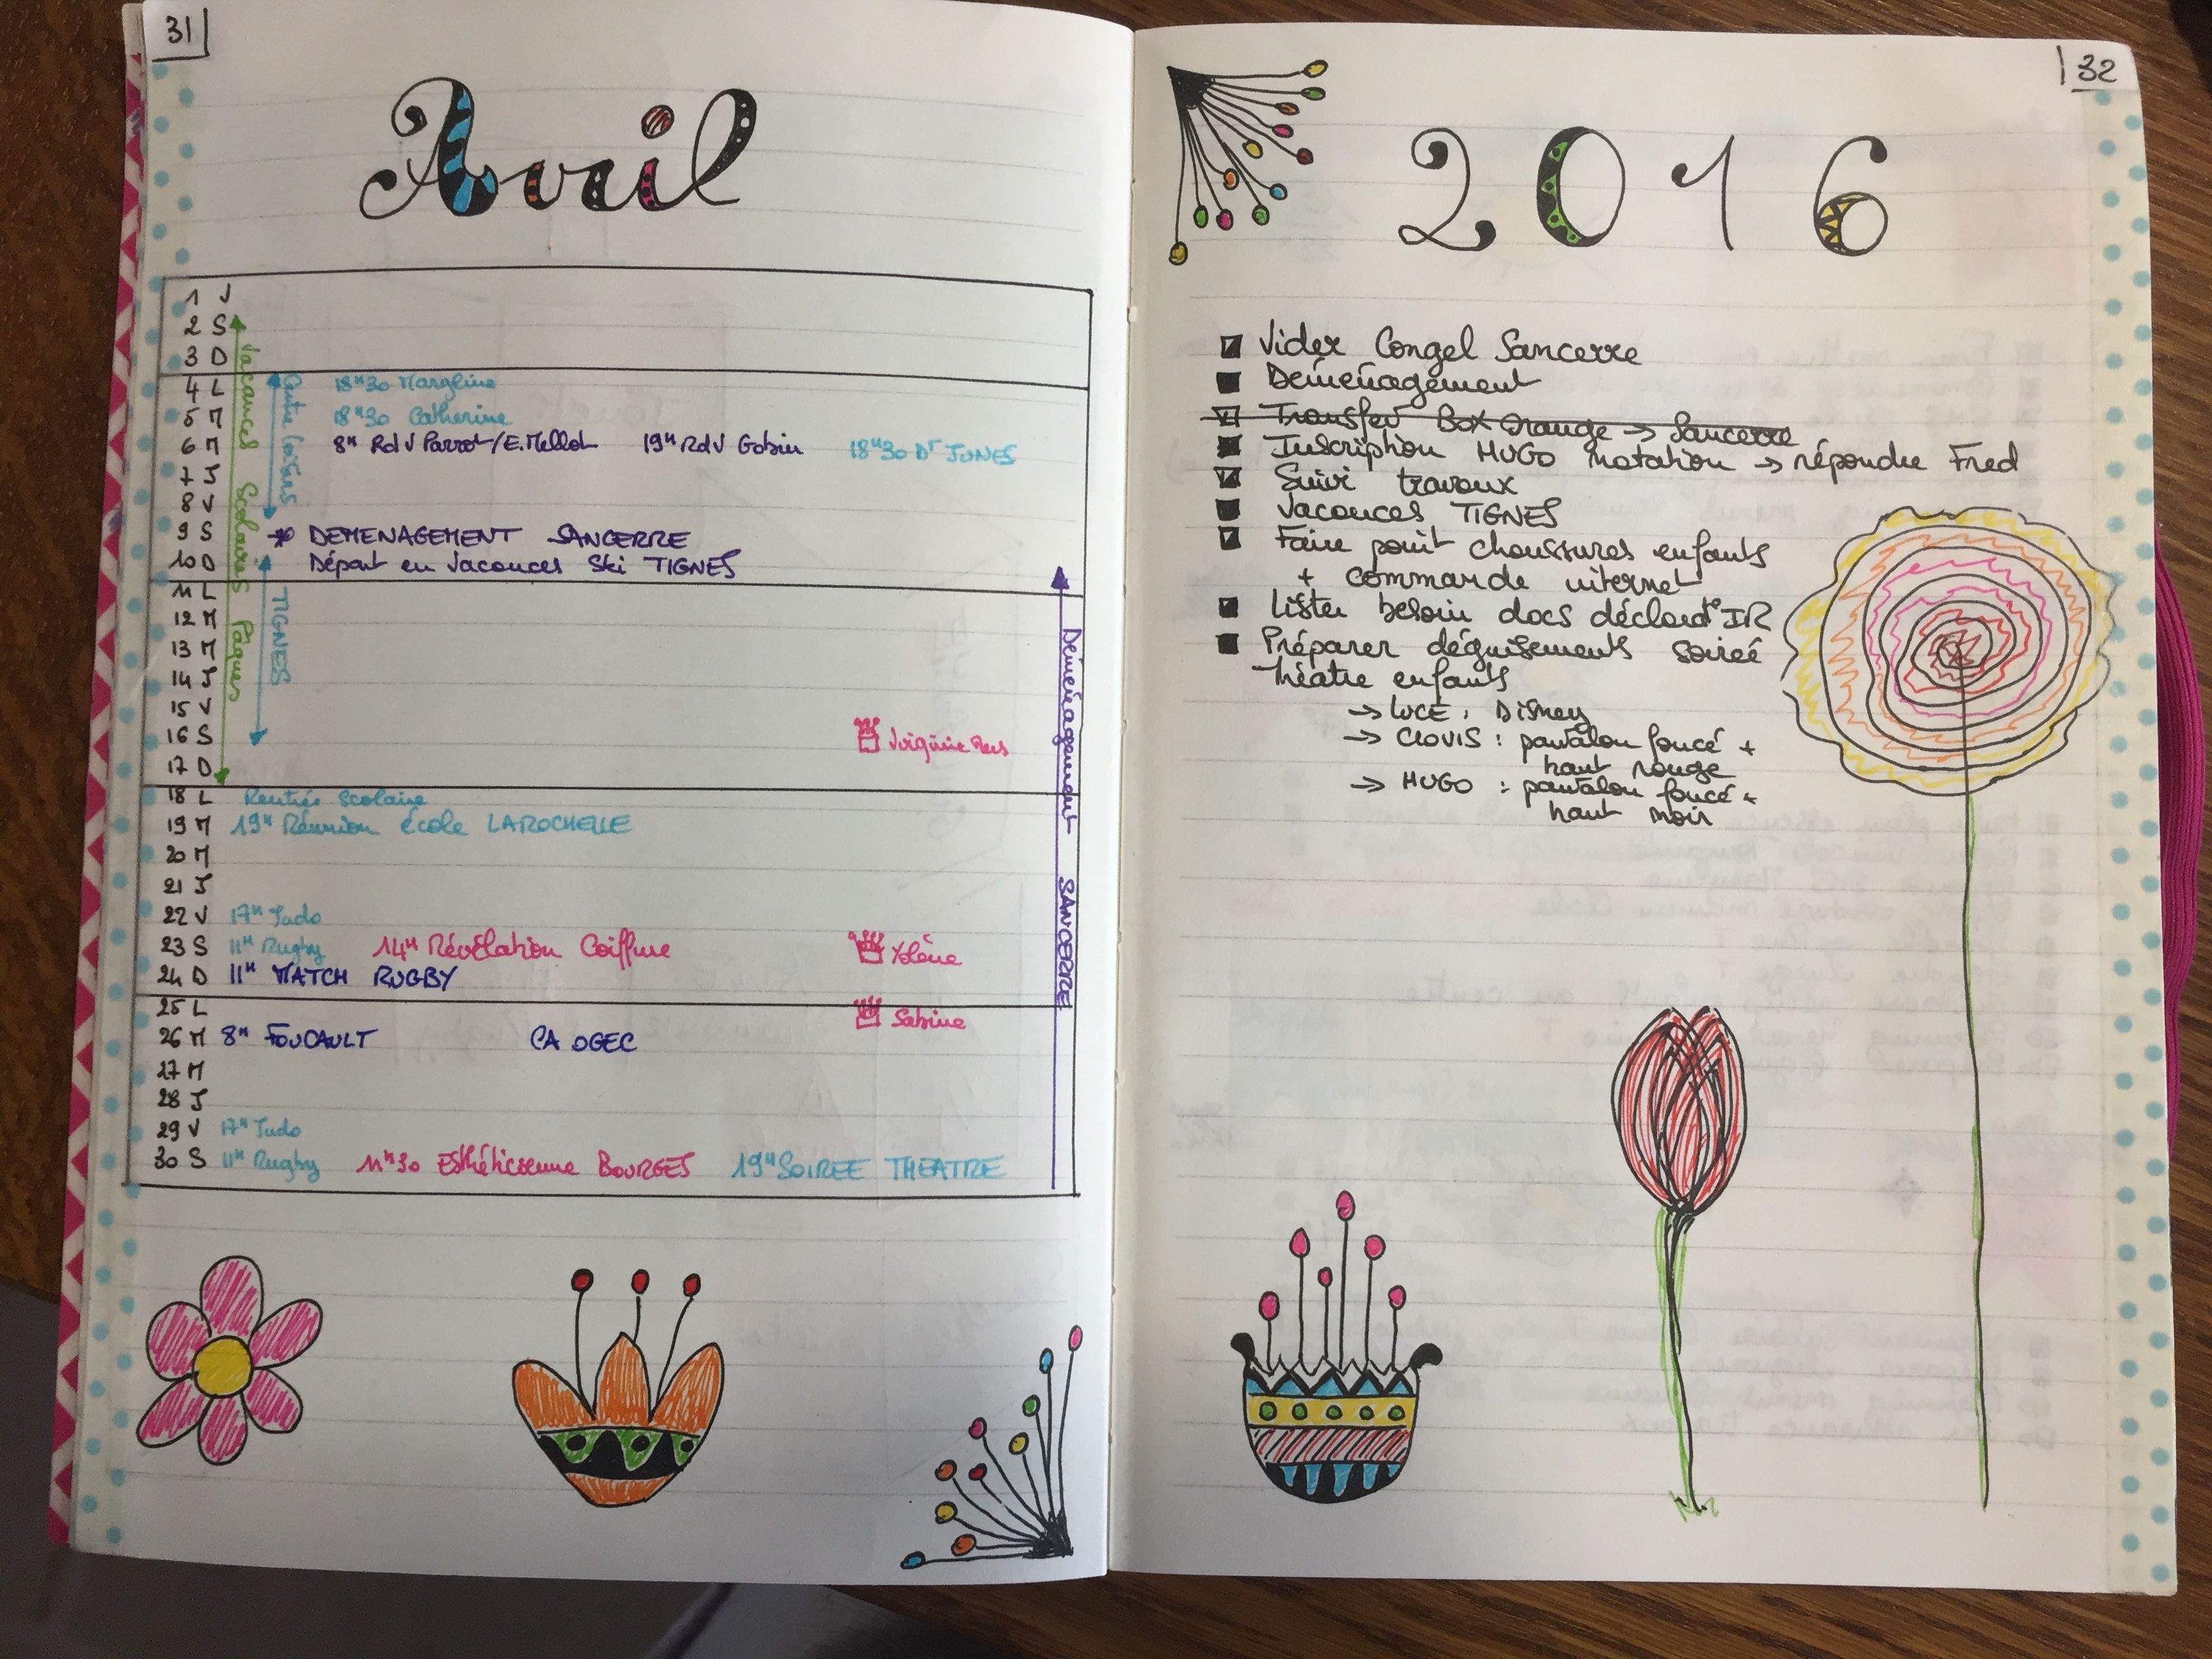 31
Avril
1 V
2 S
3 D
4 L 18H30 Margline
5 M 18H30 Catherine
6 M 8H RdV Parrot/E.Mellot 19H RdV Gobin 18H30 Dr JUNES
7 J
8 V
9 S * DEMENAGEMENT SANCERRE
10 D Départ en Vacances Ski TIGNES
11 L
12 M
13 M
14 J
15 V
16 S Virginie
17 D
18 L Rentrée Scolaire
19 M 19H Réunion école LAROCHELLE
20 M
21 J
22 V 17H Judo
23 S 11H Rugby 14H Révélation Coiffure Ylène
24 D 11H MATCH RUGBY
25 L Sabine
26 M 8H FOUCAULT CA OGEC
27 M
28 J
29 V 17H Judo
30 S 11H Rugby 11H30 Esthéticienne BOURGES 19H SOIREE THEATRE
Vacances Scolaires Pâques
TIGNES
Déménagement SANCERRE
32
2016
Vider Congel Sancerre
Déménagement
Transfer Box Orange → Sancerre
Inscription HUGO natation → répondre Fred
Suivi travaux
Vacances TIGNES
Faire point chaussures enfants
+ commande internet
Lister besoin docs déclarat° IR
Préparer déguisements soirée
théatre enfants
→ LUCE : Disney
→ CLOVIS : pantalon foncé +
haut rouge
→ HUGO : pantalon foncé +
haut noir